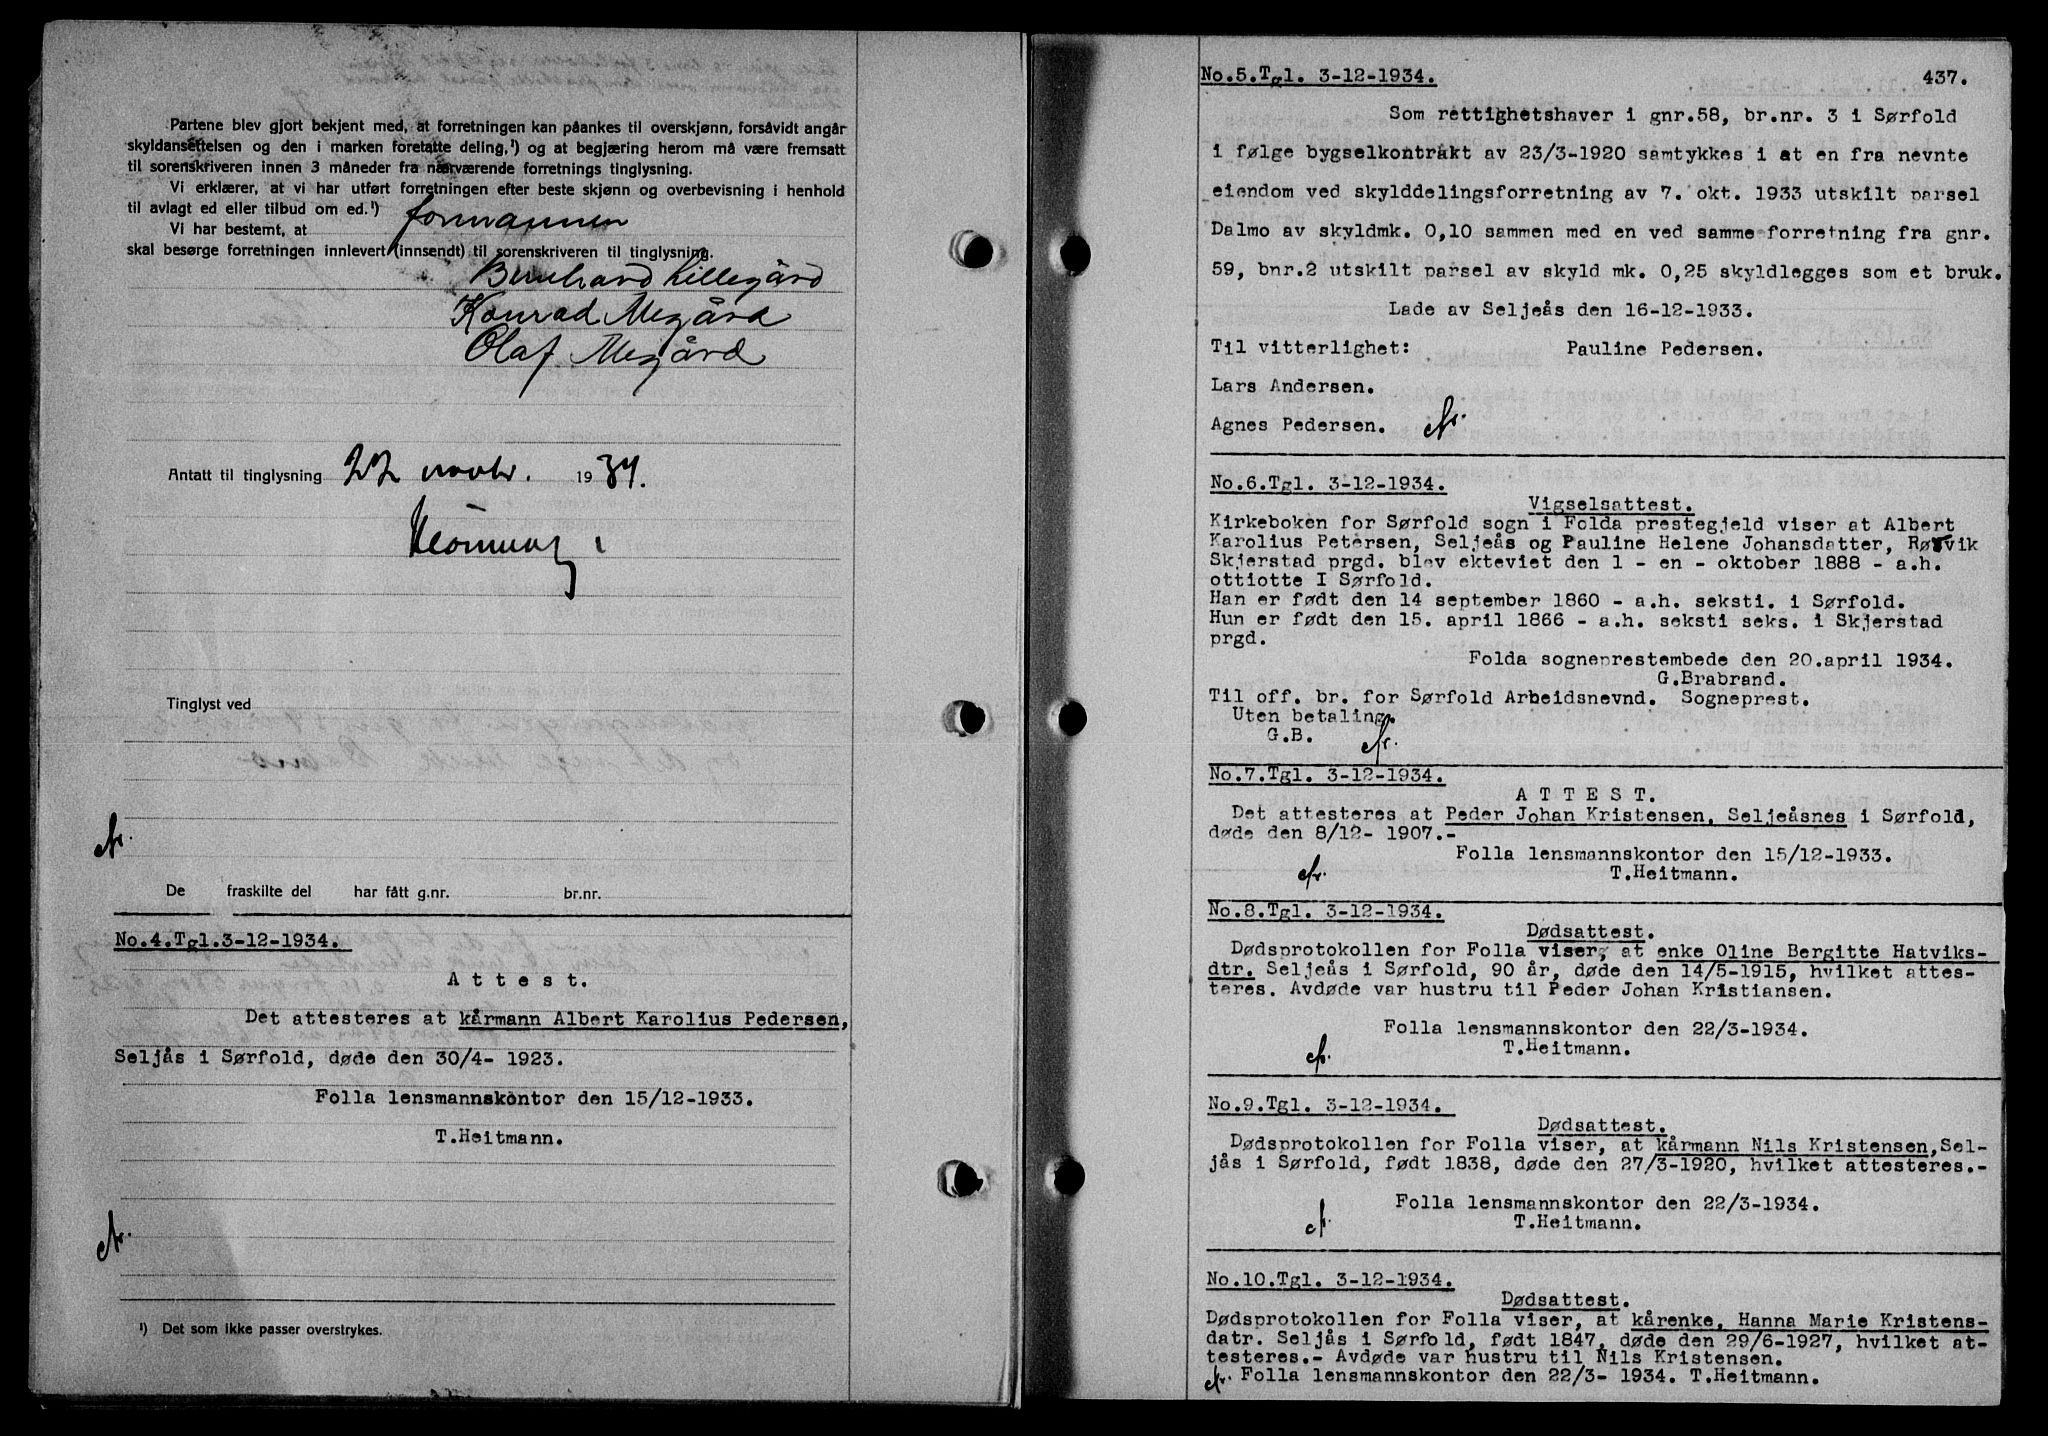 Partene blev gjort bekjent med, at forretningen kan påankes til overskjønn, forsåvidt angår
skyldansettelsen og den i marken foretatte deling,¹) og at begjæring herom må være fremsatt
til sorenskriveren innen 3 måneder fra nærværende forretnings tinglysning.
Vi erklærer, at vi har utført forretningen efter beste skjønn og overbevisning i henhold
til avlagt ed eller tilbud om ed.¹)
Vi har bestemt, at formannen
skal besørge forretningen innlevert (innsendt) til sorenskriveren til tinglysning.
Bernhard Lillegård
Konrad Megård
Olaf Megård
Antatt til tinglysning 22 novbr. 1934.
Tinglyst ved
De fraskilte del har fått g.nr. br.nr.
No.4.Tgl.3-12-1934.
Attest.
Det attesteres at kårmann Albert Karolius Pedersen,
Seljås i Sørfold, døde den 30/4- 1923.
Folla lensmannskontor den 15/12-1933.
T.Heitmann.
¹) Det som ikke passer overstrykes.
437.
No.5.Tgl. 3-12-1934.
Som rettighetshaver i gnr.58, br.nr. 3 i Sørfold
i følge bygselkontrakt av 23/3-1920 samtykkes i at en fra nevnte
eiendom ved skylddelingsforretning av 7. okt. 1933 utskilt parsel
Dalmo av skyldmk. 0,10 sammen med en ved samme forretning fra gnr.
59, bnr.2 utskilt parsel av skyld mk. 0,25 skyldlegges som et bruk.
Lade av Seljeås den 16-12-1933.
Til vitterlighet: Pauline Pedersen.
Lars Andersen.
Agnes Pedersen.
No.6.Tgl. 3-12-1934.
Vigselsattest.
Kirkeboken for Sørfold sogn i Folda prestegjeld viser at Albert
Karolius Petersen, Seljeås og Pauline Helene Johansdatter, Røsvik
Skjerstad prgd. blev ekteviet den 1 - en - oktober 1888 - a.h.
ottiotte I Sørfold.
Han er født den 14 september 1860 - a.h. seksti. i Sørfold.
Hun er født den 15. april 1866 - a.h. seksti seks. i Skjerstad
prgd.
Folda sogneprestembede den 20.april 1934.
G.Brabrand.
Til off. br. for Sørfold Arbeidsnevnd. Sogneprest.
Uten betaling.
G.B.
No.7.Tgl. 3-12-1934.
ATTEST.
Det attesteres at Peder Johan Kristensen, Seljeåsnes i Sørfold,
døde den 8/12- 1907.-
Folla lensmannskontor den 15/12-1933.
T.Heitmann.
No.8.Tgl. 3-12-1934.
Dødsattest.
Dødsprotokollen for Folla viser, at enke Oline Bergitte Hatviks-
dtr. Seljeås i Sørfold, 90 år, døde den 14/5-1915, hvilket attes-
teres. Avdøde var hustru til Peder Johan Kristiansen.
Folla lensmannskontor den 22/3-1934.
T.Heitmann.
No.9.Tgl. 3-12-1934.
Dødsattest.
Dødsprotokollen for Folla viser, at kårmann Nils Kristensen,Sel-
jås i Sørfold, født 1838, døde den 27/3-1920, hvilket attesteres.-
Folla lensmannskontor den 22/3-1934.
T.Heitmann.
No.10.Tgl. 3-12-1934.
Dødsattest.
Dødsprotokollen for Folla viser, at kårenke, Hanna Marie Kristens-
datr. Seljås i Sørfold, født 1847, døde den 29/6-1927, hvilket at-
testeres.- Avdøde var hustru til Nils Kristensen.
Folla lensmannskontor den 22/3- 1934. T.Heitmann.